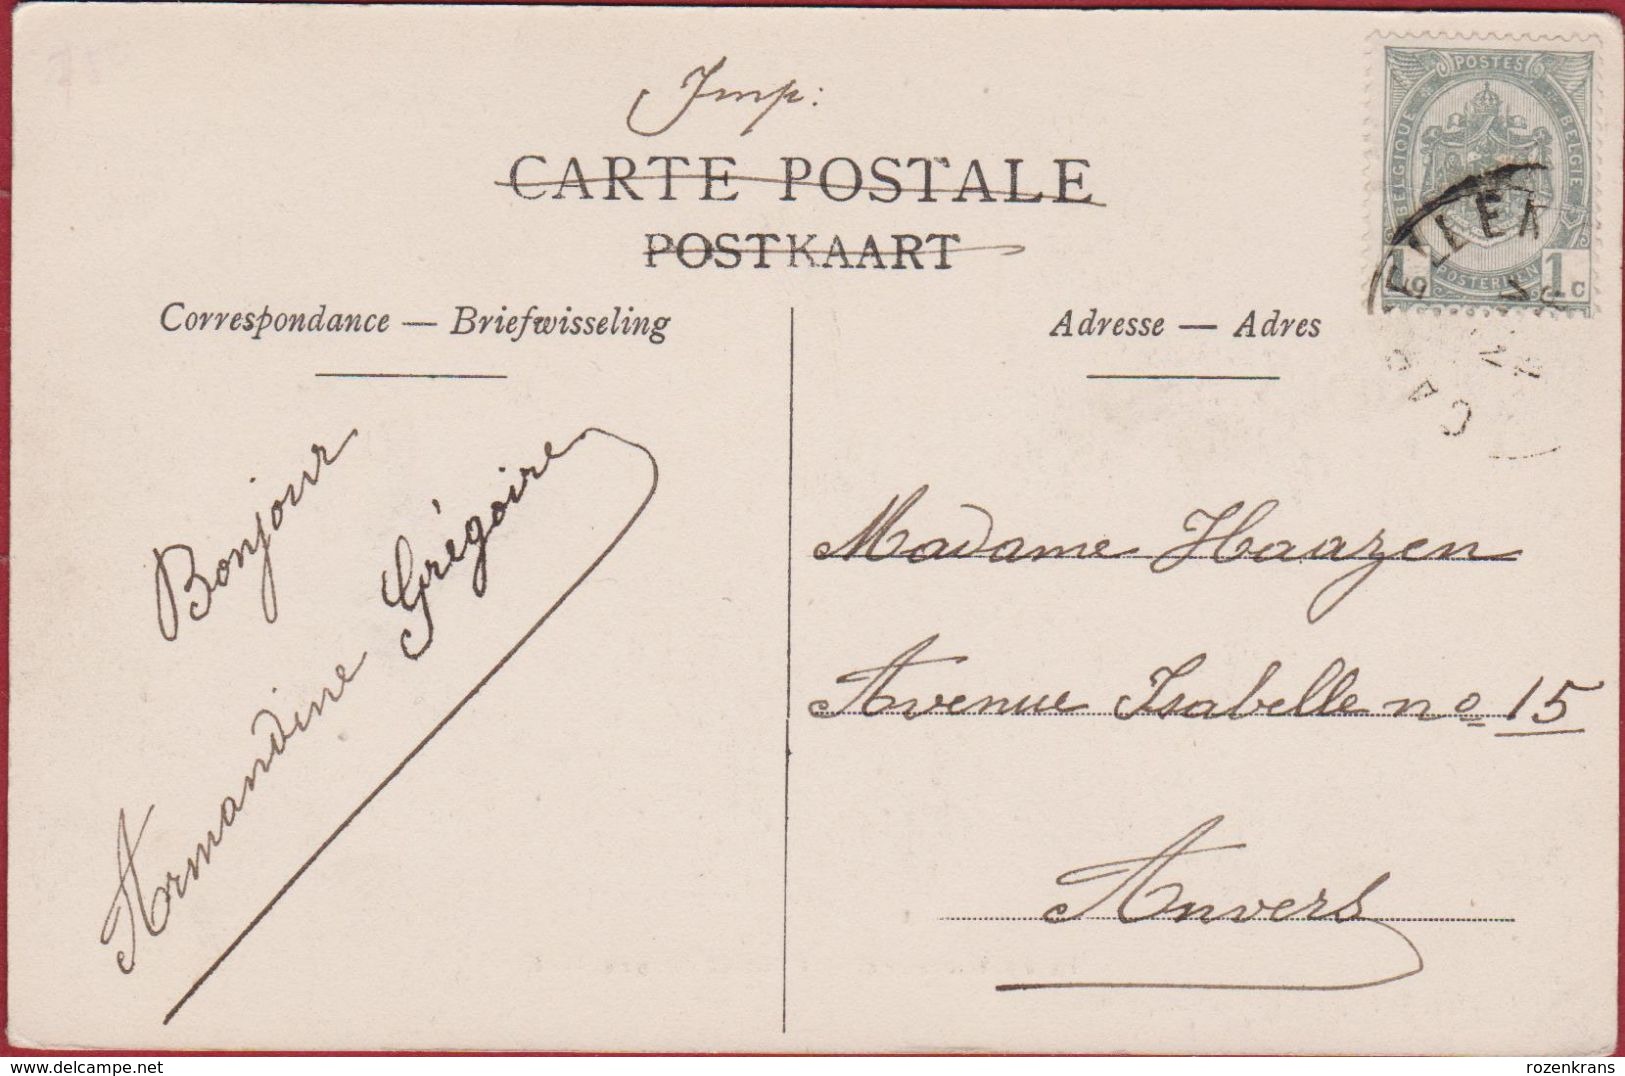 Imp:
CARTE POSTALE
POSTKAART
Correspondance — Briefwisseling
Adresse — Adres
POSTES
BELGIQUE BELGIE
POSTERIJEN
1 1c
Bonjour
Armandine Grégoire
Madame Haazen
Avenue Isabelle no 15
Anvers
delcampe.net
rozenkrans